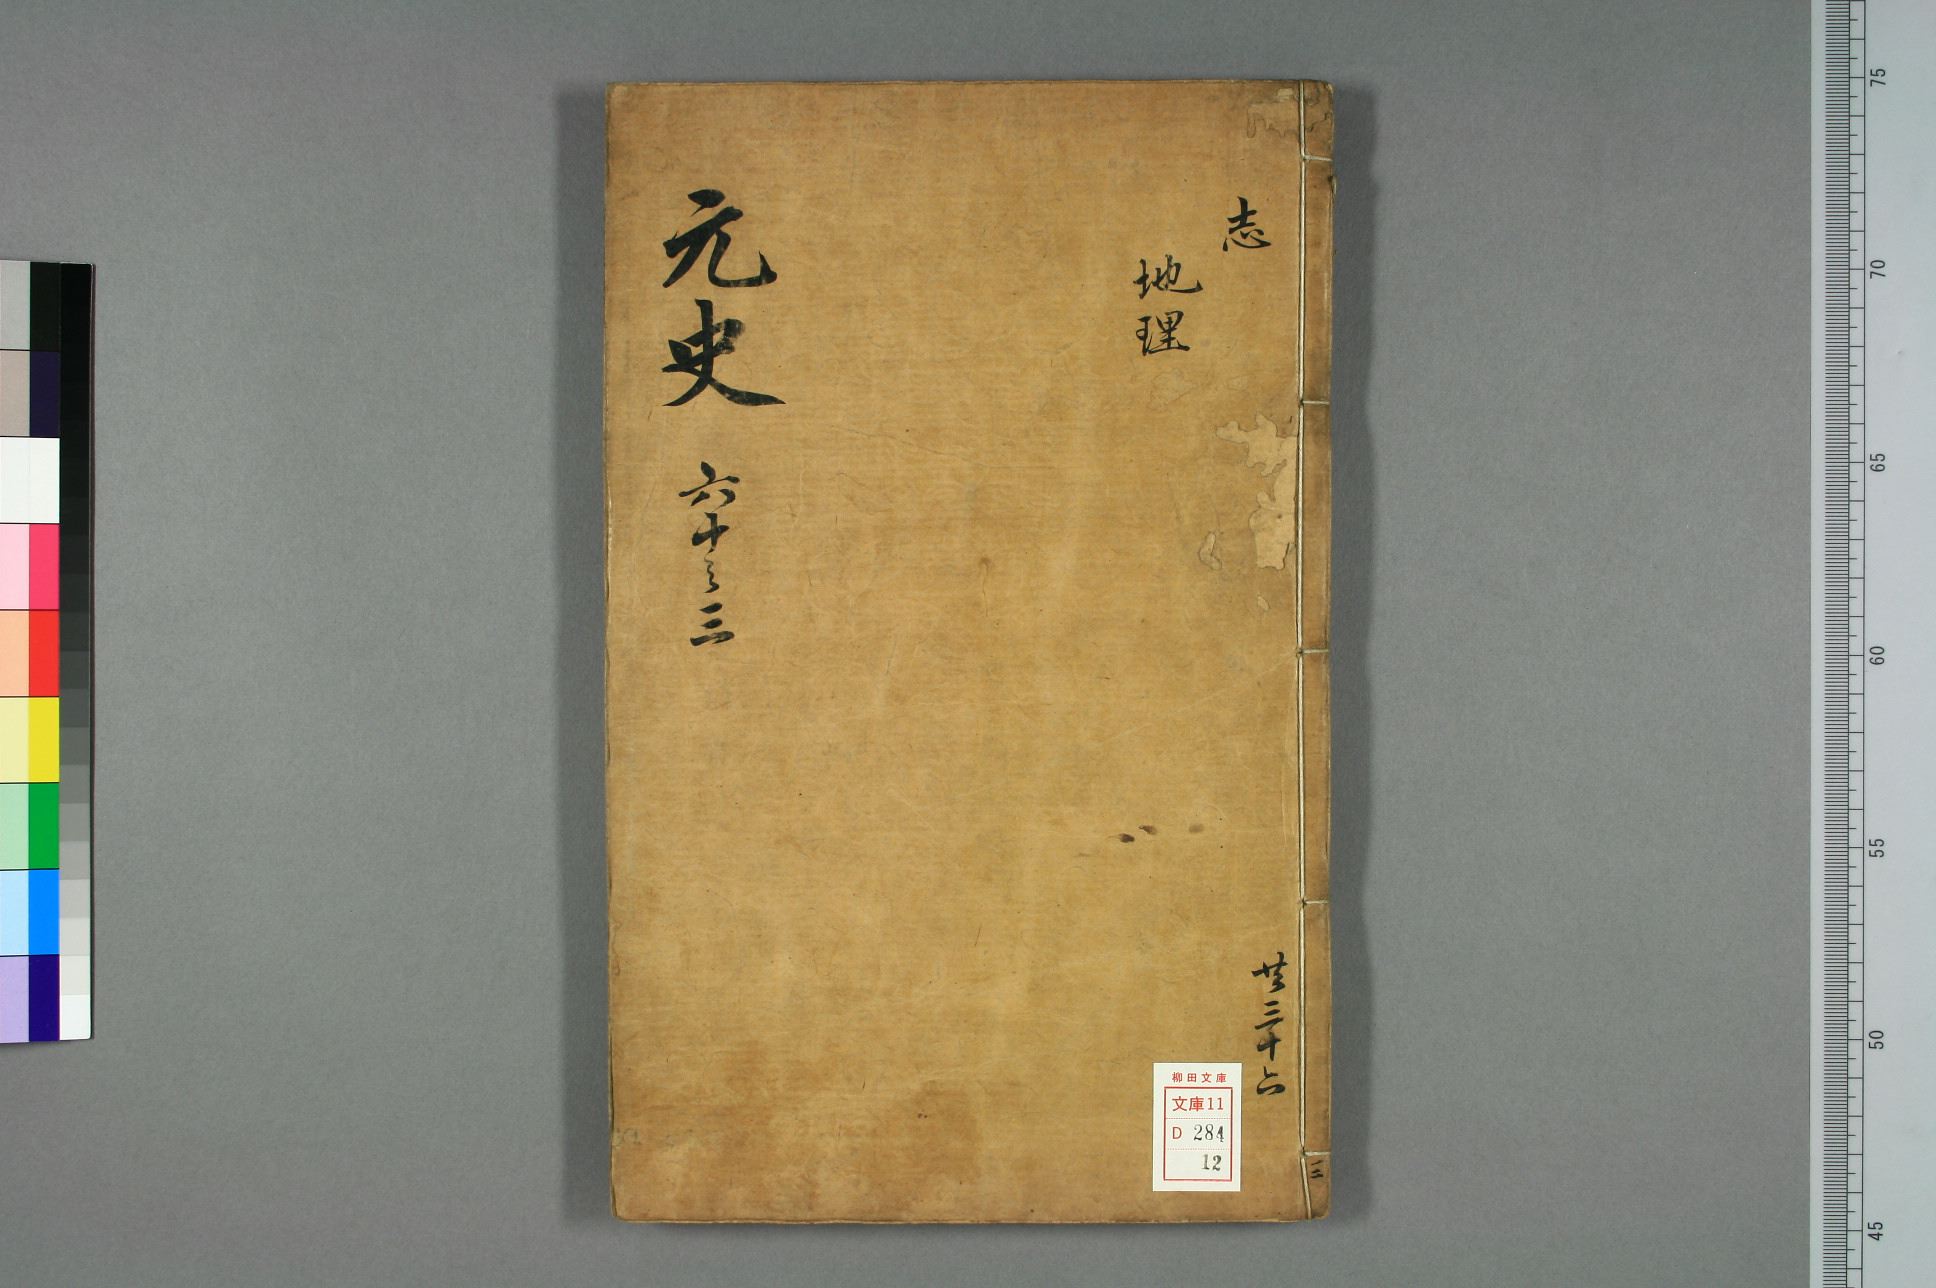 志
地理
元史 六十之三
共三十六
柳田文庫
文庫11
D 284
12
75
70
65
60
55
50
45